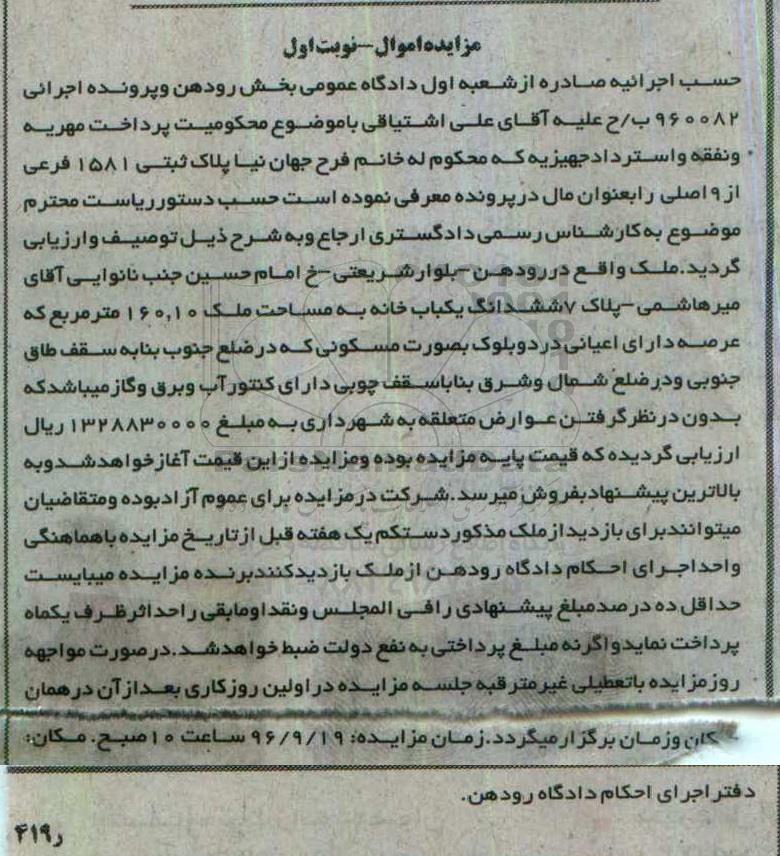 مزایده اموال-نوبت اول
حسب اجرائیه صادره از شعبه اول دادگاه عمومی بخش رودهن وپرونده اجرائی
۹۶۰۰۸۲ ب/ح علیه آقای علی اشتیاقی باموضوع محکومیت پرداخت مهریه
ونفقه واسترداد جهیزیه که محکوم له خانم فرح جهان نیا پلاک ثبتی ۱۵۸۱ فرعی
از ۹ اصلی رابعنوان مال در پرونده معرفی نموده است حسب دستور ریاست محترم
موضوع به کارشناس رسمی دادگستری ارجاع وبه شرح ذیل توصیف وارزیابی
گردید.ملک واقع در رودهن-بلوار شریعتی-خ امام حسین جنب نانوایی آقای
میرهاشمی-پلاک ۷ششدانگ یکباب خانه به مساحت ملک ۱۶۰,۱۰ مترمربع که
عرصه دارای اعیانی در دو بلوک بصورت مسکونی که در ضلع جنوب بنابه سقف طاق
جنوبی ودر ضلع شمال وشرق بناباسقف چوبی دارای کنتور آب وبرق وگاز میباشدکه
بدون در نظر گرفتن عوارض متعلقه به شهرداری به مبلغ ۱۳۲۸۸۳۰۰۰۰ ریال
ارزیابی گردیده که قیمت پایه مزایده بوده ومزایده از این قیمت آغاز خواهدشدوبه
بالاترین پیشنهادبفروش میرسد.شرکت در مزایده برای عموم آزادبوده ومتقاضیان
میتوانندبرای بازدید از ملک مذکور دستکم یک هفته قبل از تاریخ مزایده باهماهنگی
واحداجرای احکام دادگاه رودهن از ملک بازدیدکنندبرنده مزایده میبایست
حداقل ده درصدمبلغ پیشنهادی رافی المجلس ونقداومابقی راحداثر ظرف یکماه
پرداخت نمایدواگرنه مبلغ پرداختی به نفع دولت ضبط خواهدشد.در صورت مواجهه
روز مزایده باتعطیلی غیرمترقبه جلسه مزایده در اولین روز کاری بعداز آن در همان
کان وزمان برگزار میگردد.زمان مزایده: ۹۶/۹/۱۹ ساعت ۱۰ صبح. مکان:
دفتر اجرای احکام دادگاه رودهن.
۴۱۹ر